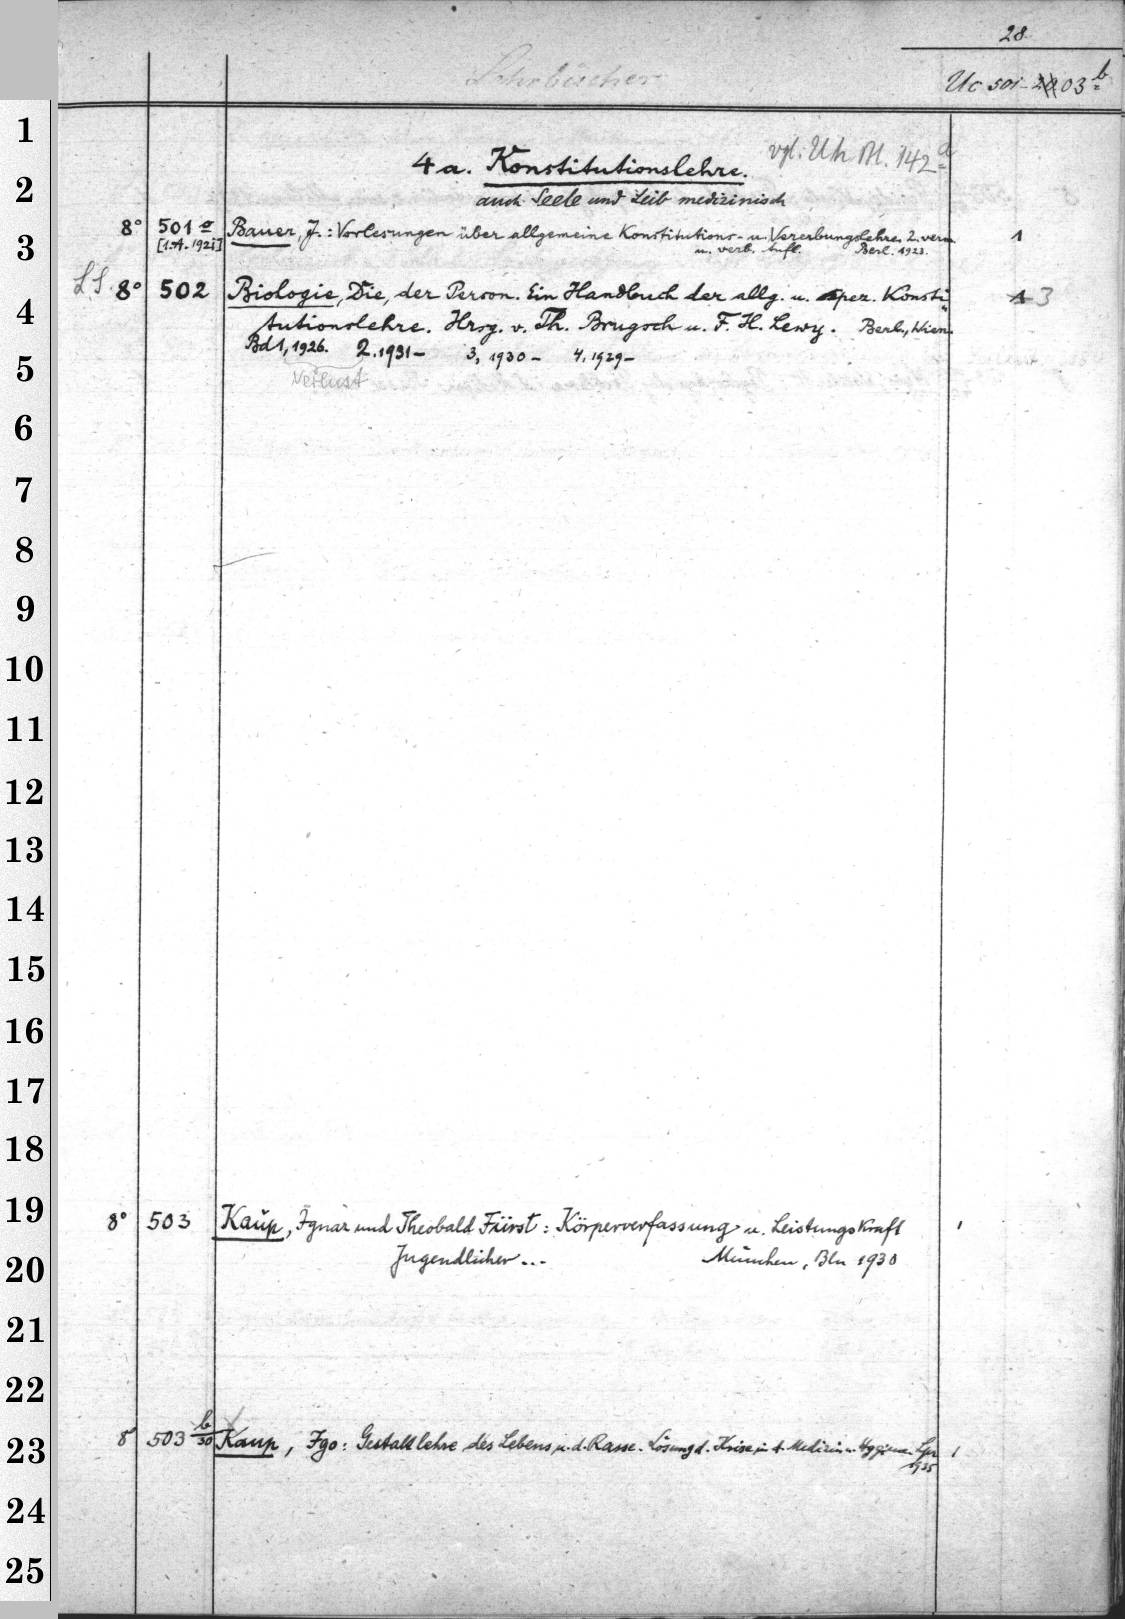 28
Lehrbücher
Uc 501-2003 b
4a. Konstitutionslehre.
vgl. Uh Bl. 142 a
auch Seele und Leib medizinisch
8° 501 a Bauer, J.: Vorlesungen über allgemeine Konstitutions- u. Vererbungslehre. 2. verm. 1
[1.A. 1921] u. verb. Aufl. Berl. 1923.
LS. 8° 502 Biologie, Die, der Person. Ein Handbuch der allg. u. spez. Konsti= 1 3
tutionslehre. Hrsg. v. Th. Brugsch u. F. H. Lewy. Berl., Wien.
Bd 1, 1926. 2. 1931- 3, 1930- 4, 1929-
Verlust
8° 503 Kaup, Ignaz und Theobald Fürst: Körperverfassung u. Leistungskraft 1
Jugendlicher... München, Bln 1930
8° 503 b/30 Kaup, Igo: Gestaltlehre des Lebens u. d. Rasse. Lösung d. Krise in d. Medizin u. Hygiene. Lpz 1
1935
1
2
3
4
5
6
7
8
9
10
11
12
13
14
15
16
17
18
19
20
21
22
23
24
25